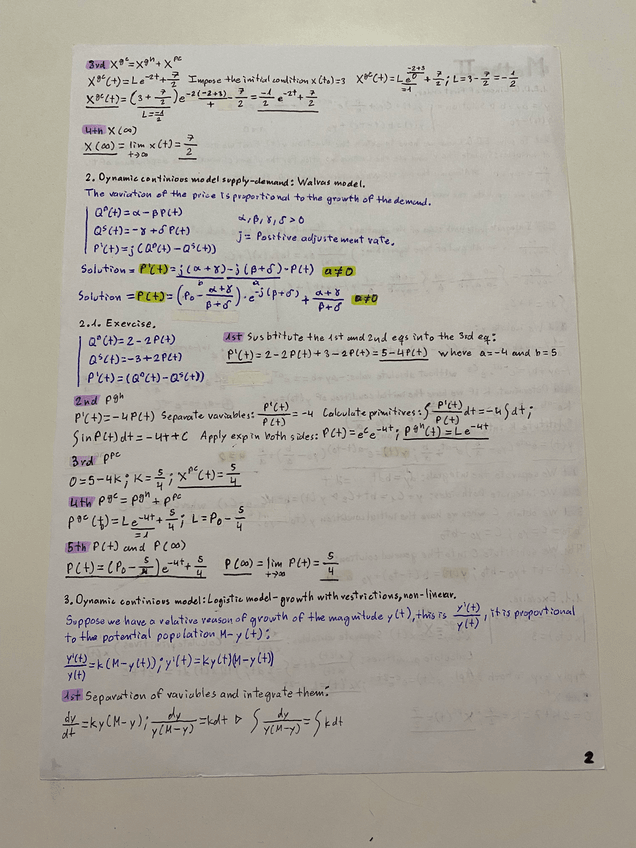 3rd X^gc = X^gh + X^pc
X^gc(t) = Le^-2t + 7/2 Impose the initial condition x(t0)=3 X^gc(t) = Le^(-2+3)/0 + 7/2; L=3-7/2=-1/2
=1
X^gc(t) = (3+7/2)e^-2(-2+3) - 7/2 = -1/2 e^-2t + 7/2
L=-1/2
4th X(∞)
X(∞) = lim x(t) = 7/2
t→∞
2. Dynamic continious model supply-demand: Walras model.
The variation of the price is proportional to the growth of the demand.
Q^D(t) = α - βP(t) α, β, γ, δ > 0
Q^S(t) = -γ + δP(t) j = Positive adjustement rate.
P'(t) = j(Q^D(t) - Q^S(t))
Solution = P'(t) = j(α+γ) - j(β+δ)·P(t) a≠0
b a
Solution = P(t) = (P0 - α+γ/β+δ)·e^-j(β+δ) + α+γ/β+δ a≠0
2.1. Exercise.
Q^D(t) = 2-2P(t) 1st Susbtitute the 1st and 2nd eqs into the 3rd eq:
Q^S(t) = -3+2P(t) P'(t) = 2-2P(t)+3-2P(t) = 5-4P(t) where a=-4 and b=5
P'(t) = (Q^D(t) - Q^S(t))
2nd P^gh
P'(t) = -4P(t) Separate variables: P'(t)/P(t) = -4 Calculate primitives: ∫P'(t)/P(t) dt = -4∫dt;
∫lnP(t)dt = -4t+C Apply exp in both sides: P(t) = e^c e^-4t; P^gh(t) = Le^-4t
3rd P^pc
0=5-4K; K=5/4; X^pc(t) = 5/4
4th P^gc = P^gh + P^pc
P^gc(t) = Le^-4t + 5/4; L = P0 - 5/4
=1
5th P(t) and P(∞)
P(t) = (P0 - 5/4)e^-4t + 5/4 P(∞) = lim P(t) = 5/4
t→∞
3. Dynamic continious model: Logistic model-growth with restrictions, non-linear.
Suppose we have a relative reason of growth of the magnitude y(t), this is y'(t)/y(t), it is proportional
to the potential population M-y(t):
y'(t)/y(t) = k(M-y(t)); y'(t) = ky(t)(M-y(t))
1st Separation of variables and integrate them:
dy/dt = ky(M-y); dy/y(M-y) = kdt ▷ ∫dy/y(M-y) = ∫kdt
2